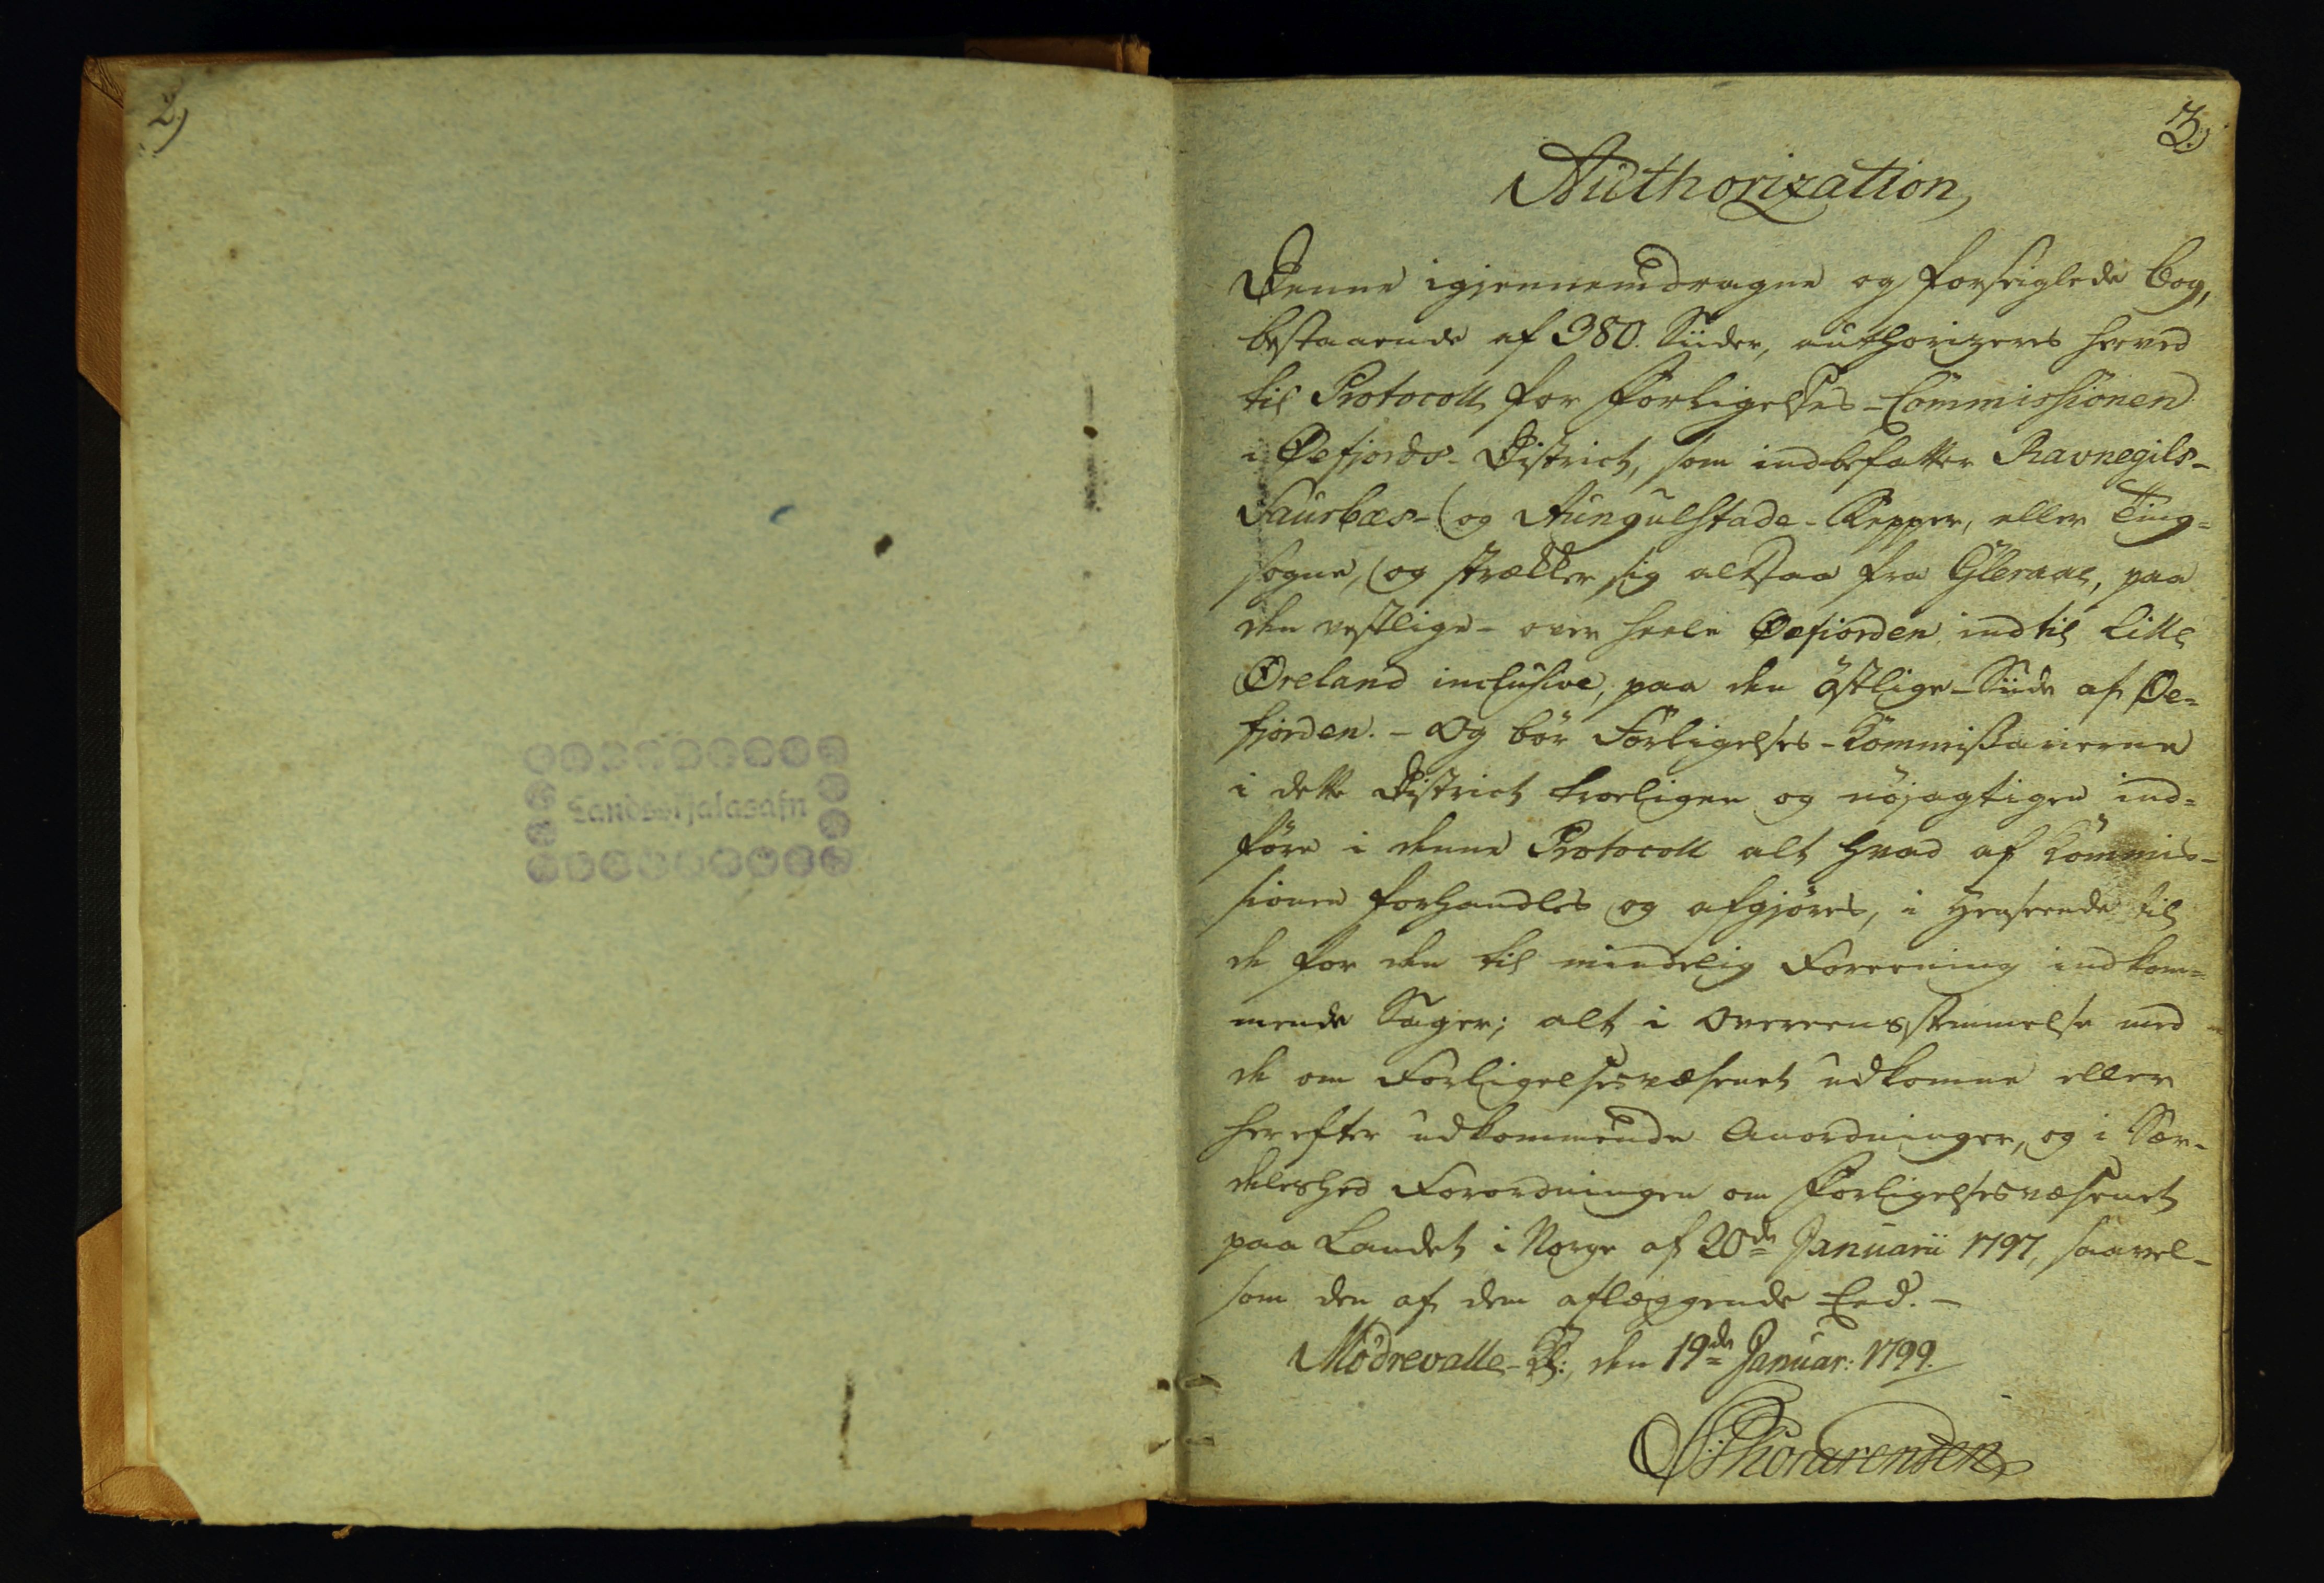 2)
Landsskjalasafn
3.)
Authorization
Denne igjennemdragne og forseiglede Bog,
bestaaende af 380. Siider, authorizeres herved
til Protocoll for Forligelses-Commissionen
i Øefjords-District, som indbefatter Ravnegils-
Saurbæs- og Aungulstade-Repper, eller Ting=
sogne, og strækker sig altsaa fra Gleraae, paa
den vestlige- over heele Øefiorden indtil Lille
Øreland inclusive, paa den östlige-Siide af Øe=
fjorden. - Og bör Forligelses-Kommissarierne
i dette District troeligen og nöjagtigen ind=
føre i denne Protocoll alt hvad af Kommis-
sionen forhandles og afgjöres, i Henseende til
de for den til mindelig Foreening indkom=
mende Sager; alt i Overeensstemmelse med
de om Forligelsesvæsenet udkomne eller
herefter udkommende Anordninger, og i Sær-
deleshed Forordningen om Forligelsesvæsenet
paa Landet i Norge af 20de Januarii 1797, saavel-
som den af dem aflæggende Eed. -
Mödrevalle-Kl:, den 19de Januar: 1799.
S: Thorarensen